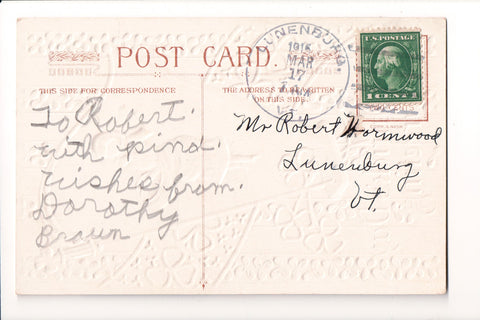 POST CARD.
THIS SIDE FOR CORRESPONDENCE
THE ADDRESS TO BE WRITTEN
ON THIS SIDE.
LUNENBURG,
1915
MAR
17
VT.
U.S. POSTAGE
1 CENT 1
To Robert.
with kind
wishes from.
Dorothy
Brown
Mr Robert Hormwood
Lunenburg
Vt.